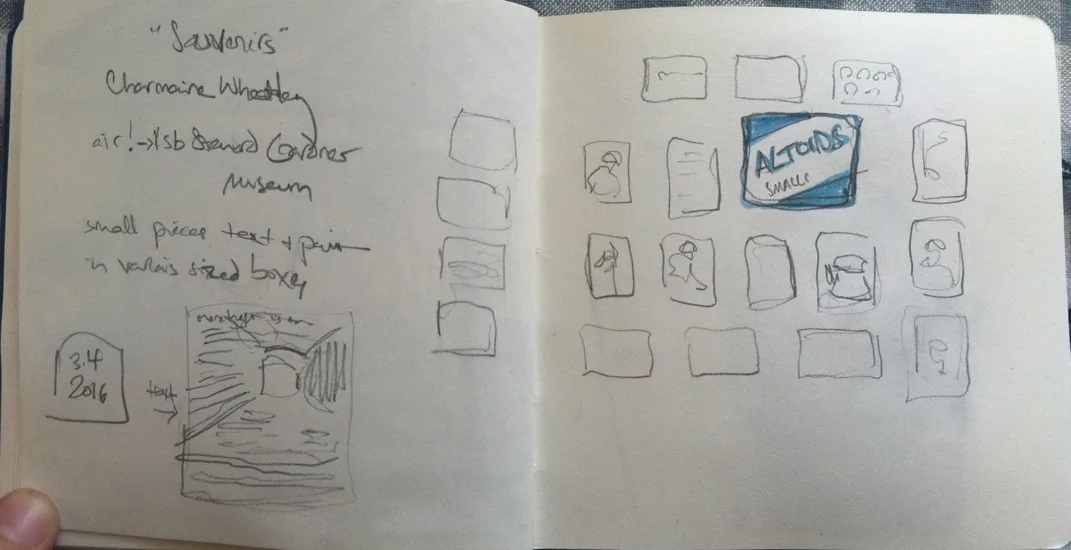 "Souvenirs"
Charmaine Wheatley
air! → Isb Steward Gardner
Museum
small pieces text + pain
in various sized boxes
3.4
2016
text
ALTOIDS
SMALLS